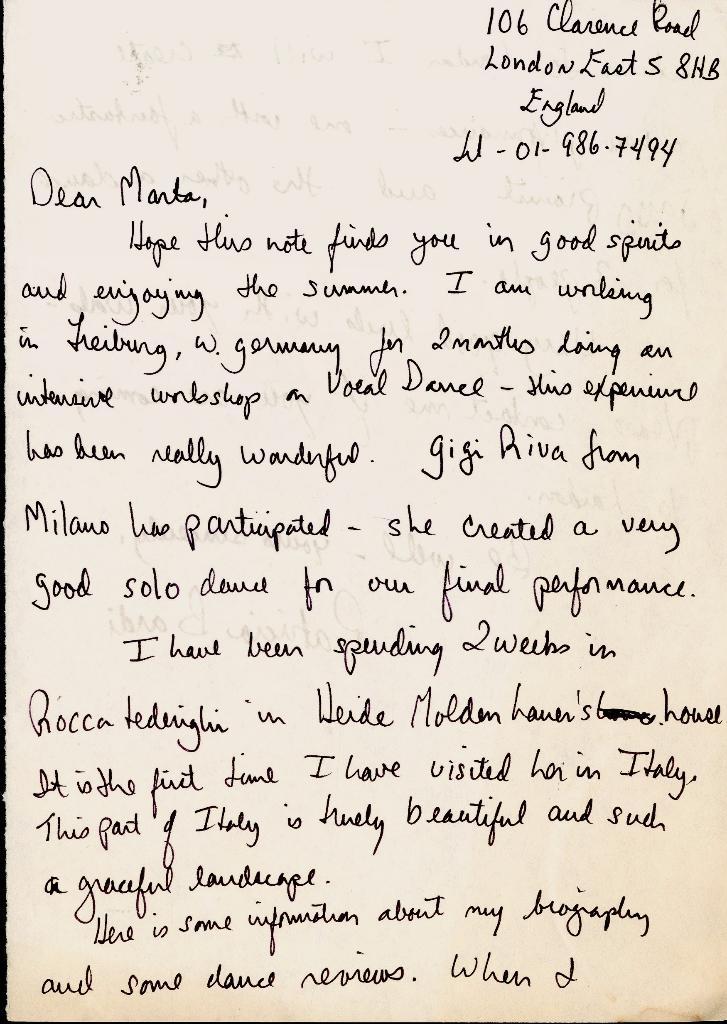 106 Clarence Road
London East 5 8HB
England
tel - 01- 986-7494
Dear Marta,
Hope this note finds you in good spirits
and enjoying the summer. I am working
in Freiburg, W. Germany for 2 months doing an
intensive workshop on Vocal Dance - this experience
has been really wonderful. Gigi Riva from
Milano has participated - she created a very
good solo dance for our final performance.
I have been spending 2 weeks in
Rocca tederighi in Heide Moldenhauer's house
It is the first time I have visited her in Italy.
This part of Italy is truely beautiful and such
a graceful landscape.
Here is some information about my biography
and some dance reviews. When I